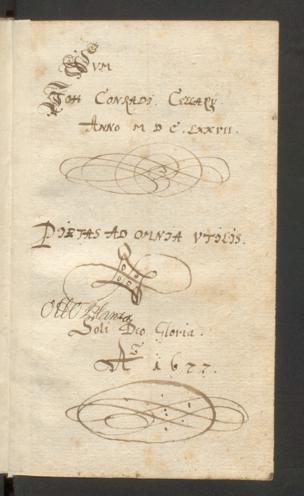 Sum
Joh Conradi. Cellary
Anno M D C. LXXVII.
PIETAS AD OMNIA VTILIS.
Otto Planta
Soli Deo Gloria.
Aō 1677.